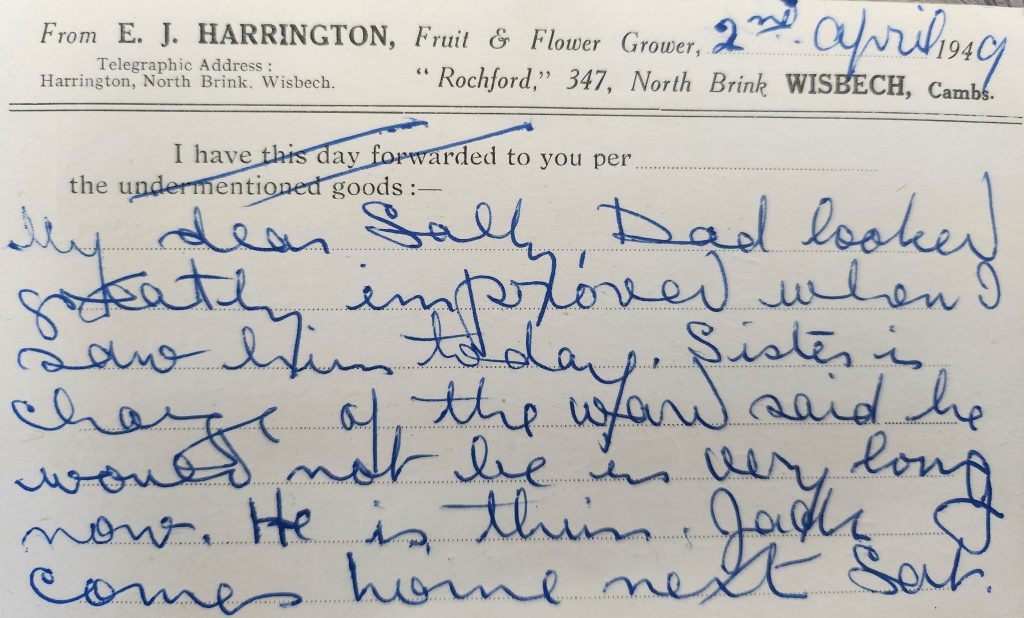 From E. J. HARRINGTON, Fruit & Flower Grower, 2nd. April 1949
Telegraphic Address:
Harrington, North Brink. Wisbech.
"Rochford," 347, North Brink WISBECH, Cambs.
I have this day forwarded to you per
the undermentioned goods:—
My dear Sally, Dad looked
greatly improved when I
saw him today. Sister in
charge of the ward said he
would not be in very long
now. He is thin. Jack
comes home next Sat.